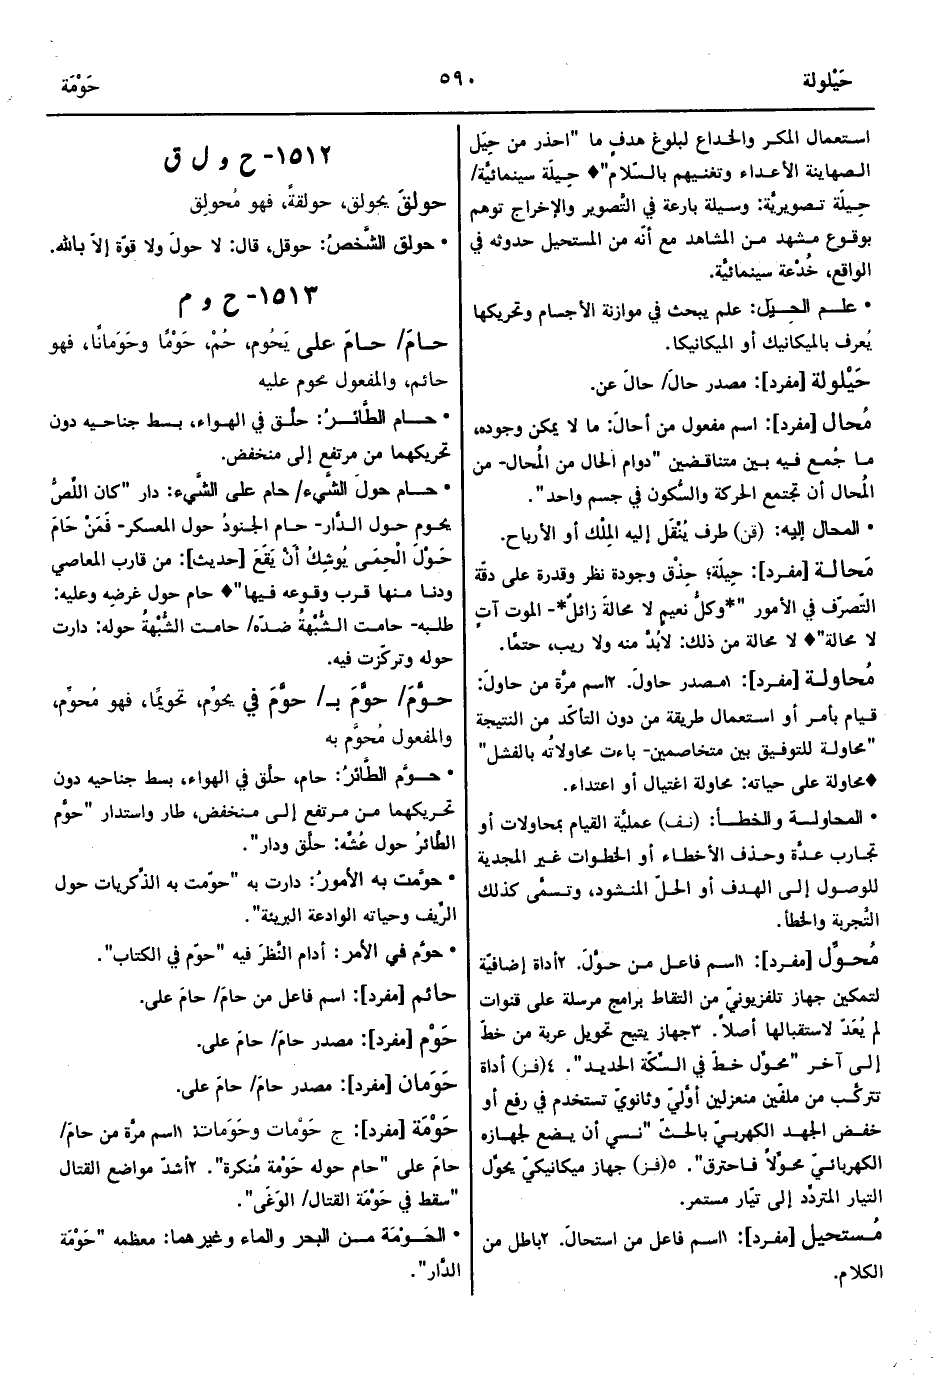 حَيْلولة
٥٩٠
حَوْمَة
استعمال المكر والخداع لبلوغ هدفٍ ما "احذر من حِيَل
الصهاينة الأعداء وتغنيهم بالسّلام"♦ حِيلة سينمائيَّة/
حِيلَة تصويريَّة: وسيلة بارعة في التَّصوير والإخراج توهم
بوقوع مشهد من المشاهد مع أنّه من المستحيل حدوثه في
الواقع، خُدْعة سينمائيَّة.
• علم الحِيَل: علم يبحث في موازنة الأجسام وتحريكها
يُعرف بالميكانيك أو الميكانيكا.
حَيْلولة [مفرد]: مصدر حالَ/ حالَ عن.
مُحال [مفرد]: اسم مفعول من أحالَ: ما لا يمكن وجوده،
ما جُمع فيه بين متناقضين "دوام الحال من المُحال- من
المُحال أن تجتمع الحركة والسُّكون في جسم واحد".
• المحال إليه: (قن) طرف يُنْقَل إليه المِلْك أو الأرباح.
مَحالة [مفرد]: حِيلَة؛ حِذْق وجودة نظر وقدرة على دقّة
التّصرّف في الأمور "*وكلُّ نعيم لا محالةَ زائلُ*- الموت آتٍ
لا محالة"♦ لا محالة من ذلك: لابُدّ منه ولا ريب، حتمًا.
مُحاولة [مفرد]: ١مصدر حاولَ. ٢اسم مرَّة من حاولَ:
قيام بأمر أو استعمال طريقة من دون التأكّد من النتيجة
"محاولة للتوفيق بين متخاصمين- باءت محاولاتُه بالفشل"
♦محاولة على حياته: محاولة اغتيال أو اعتداء.
• المحاولة والخطأ: (نف) عمليَّة القيام بمحاولات أو
تجارب عدَّة وحذف الأخطاء أو الخطوات غير المجدية
للوصول إلى الهدف أو الحلّ المنشود، وتسمَّى كذلك
التَّجربة والخطأ.
مُحوِّل [مفرد]: ١اسم فاعل من حوَّلَ. ٢أداة إضافيَّة
لتمكين جهاز تلفزيونيّ من التقاط برامج مرسلة على قنوات
لم يُعَدّ لاستقبالها أصلاً. ٣جهاز يتيح تحويل عربة من خطّ
إلى آخر "محوِّل خطّ في السِّكّة الحديد". ٤(فز) أداة
تتركّب من ملفّين منعزلين أوّليّ وثانويّ تستخدم في رفع أو
خفض الجهد الكهربيّ بالحثّ "نسي أن يضع لجهازه
الكهربائيّ محوِّلاً فاحترق". ٥(فز) جهاز ميكانيكيّ يحوّل
التيار المتردِّد إلى تيّار مستمر.
مُستحيل [مفرد]: ١اسم فاعل من استحالَ. ٢باطل من
الكلام.
١٥١٢- ح و ل ق
حولقَ يحولق، حولقةً، فهو مُحولِق
• حولق الشَّخصُ: حوقل، قال: لا حولَ ولا قوّة إلاّ بالله.
١٥١٣- ح و م
حامَ/ حامَ على يَحُوم، حُمْ، حَوْمًا وحَوَمانًا، فهو
حائم، والمفعول محوم عليه
• حام الطَّائرُ: حلَّق في الهواء، بسط جناحيه دون
تحريكهما من مرتفع إلى منخفض.
• حام حولَ الشَّيء/ حام على الشَّيء: دار "كان اللّصُّ
يحوم حول الدَّار- حام الجنودُ حول المعسكر- فَمَنْ حَامَ
حَوْلَ الْحِمَى يُوشِكُ أَنْ يَقَعَ [حديث]: من قارب المعاصي
ودنا منها قرب وقوعه فيها"♦ حام حول غرضِهِ وعليه:
طلبه- حامت الشُّبْهةُ ضدّه/ حامت الشُّبْهةُ حوله: دارت
حوله وتركّزت فيه.
حوَّمَ/ حوَّمَ بـ/ حوَّمَ في يحوِّم، تحويمًا، فهو مُحوِّم،
والمفعول مُحوَّم به
• حوَّم الطَّائرُ: حام، حلَّق في الهواء، بسط جناحيه دون
تحريكهما من مرتفع إلى منخفض، طار واستدار "حوَّم
الطَّائرُ حول عُشِّه: حلَّق ودار".
• حوَّمت به الأمورُ: دارت به "حوّمت به الذِّكريات حول
الرِّيف وحياته الوادعة البريئة".
• حوَّم في الأمر: أدام النَّظرَ فيه "حوَّم في الكتاب".
حائم [مفرد]: اسم فاعل من حامَ/ حامَ على.
حَوْم [مفرد]: مصدر حامَ/ حامَ على.
حَوَمان [مفرد]: مصدر حامَ/ حامَ على.
حَوْمَة [مفرد]: ج حَوْمات وحَوَمات: ١اسم مرَّة من حامَ/
حامَ على "حام حوله حَوْمَة مُنكرة". ٢أشدّ مواضع القتال
"سقط في حَوْمَة القتال/ الوَغَى".
• الحَوْمَة من البحر والماء وغيرهما: معظمه "حَوْمَة
الدَّار".